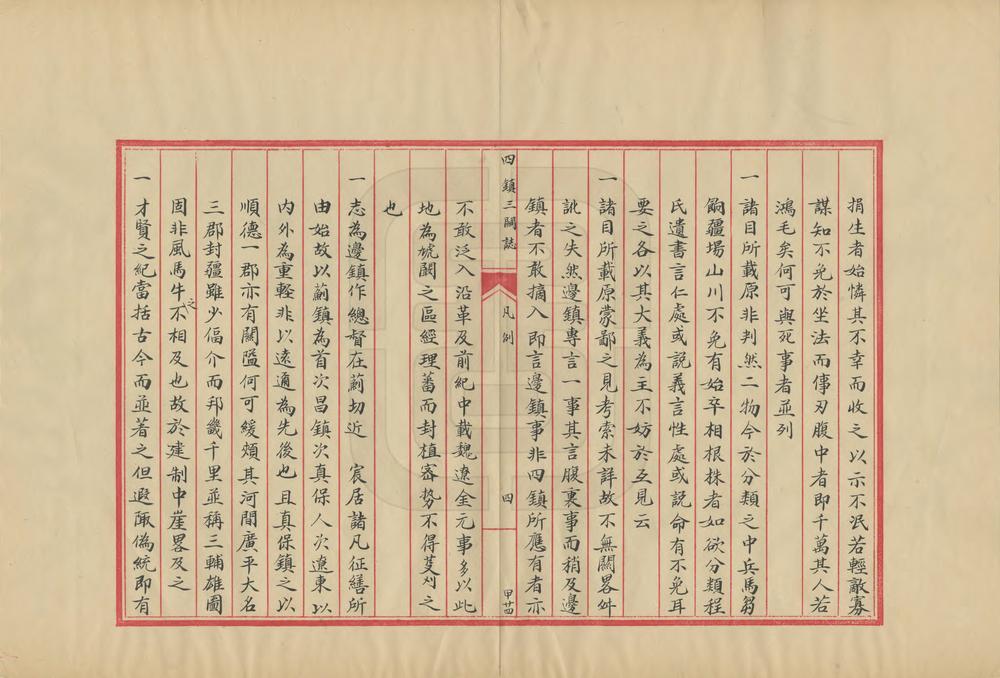 捐生者始憐其不幸而收之以示不泯若輕敵寡
謀知不免於坐法而倳刃腹中者即千萬其人若
鴻毛矣何可與死事者並列
一 諸目所載原非判然二物今於分類之中兵馬芻
餉疆場山川不免有始卒相根株者如欲分類程
氏遺書言仁處或說義言性處或說命有不免耳
要之各以其大義為主不妨於互見云
一 諸目所載原蒙鄙之見考索未詳故不無闕畧舛
訛之失然邊鎮專言一事其言腹裏事而稍及邊
鎮者不敢摘入即言邊鎮事非四鎮所應有者亦
四鎮三關誌 凡例 四
不敢泛入沿革及前紀中載魏遼金元事多以此
地為垊闕之區經理蓄而封植審勢不得芟刈之
也
一 志為邊鎮作總督在薊切近 宸居諸凡征繕所
由始故以薊鎮為首次昌鎮次真保人次遼東以
內外為重輕非以遠適為先後也且真保鎮之以
順德一郡亦有關隘何可緩頰其河間廣平大名
三郡封疆雖少偪介而邦畿千里並稱三輔雄圖
固非風馬牛之不相及也故於建制中崖畧及之
一 才賢之紀當括古今而並著之但遐陬偽統即有